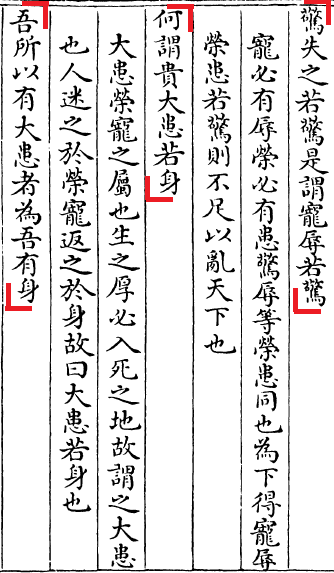 驚失之若驚是謂寵辱若驚
寵必有辱榮必有患驚辱等榮患同也為下得寵辱
榮患若驚則不足以亂天下也
何謂貴大患若身
大患榮寵之屬也生之厚必入死之地故謂之大患
也人迷之於榮寵返之於身故曰大患若身也
吾所以有大患者為吾有身